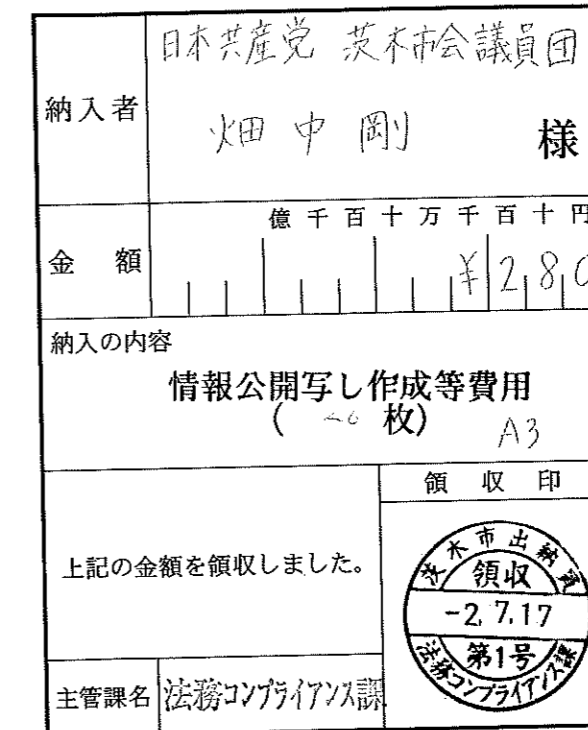 納入者
日本共産党 茨木市会議員団
畑中 剛 様
億 千 百 十 万 千 百 十 円
金 額
¥280
納入の内容
情報公開写し作成等費用
( 枚) A3
領 収 印
上記の金額を領収しました。
茨木市出納員
領収
-2.7.17
第1号
法務コンプライアンス課
主管課名 法務コンプライアンス課